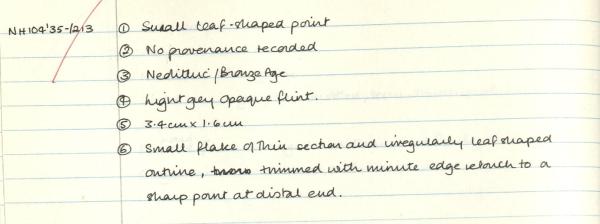 NH104'35-1213 ① Small leaf-shaped point
② No provenance recorded
③ Neolithic/Bronze Age
④ Light grey opaque flint.
⑤ 3.4cm x 1.6cm
⑥ Small flake of thin section and irregularly leaf shaped
outline, trimmed with minute edge retouch to a
sharp point at distal end.